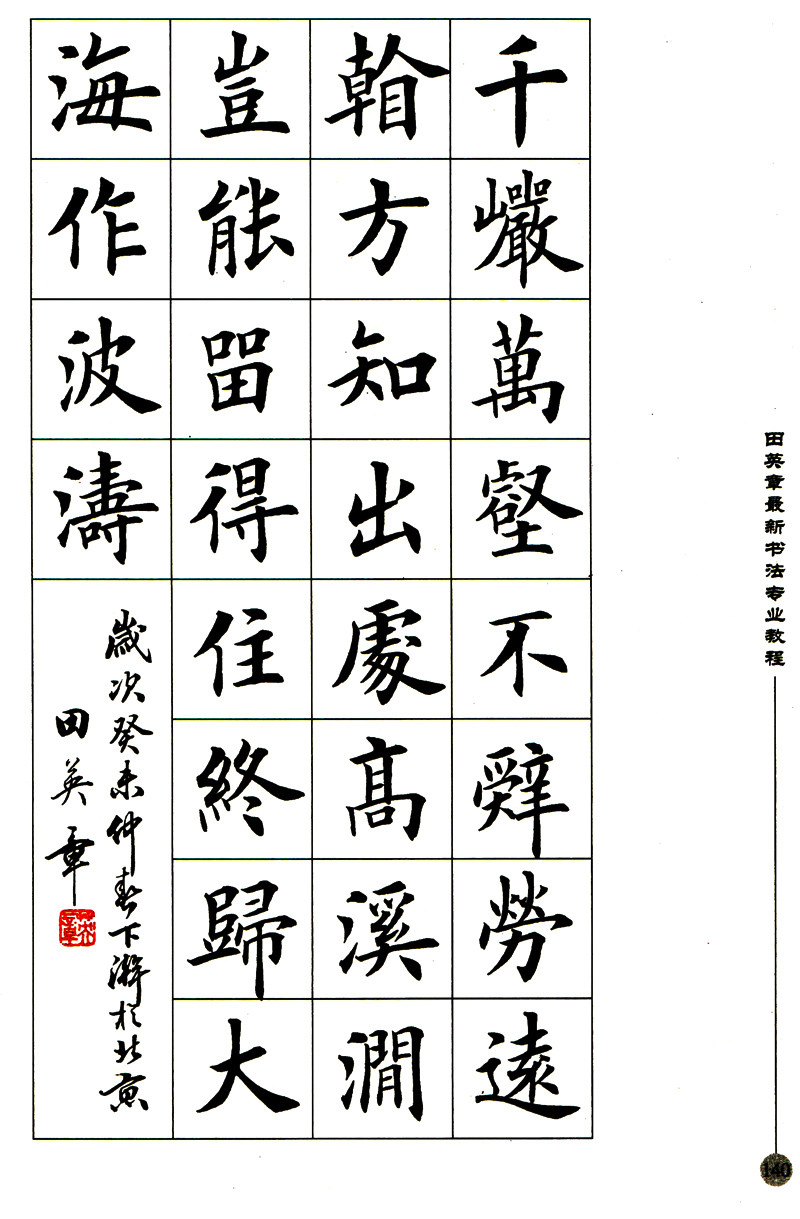 千巖萬壑不辭勞遠
看方知出處高溪澗
豈能留得住終歸大
海作波濤
歲次癸未仲春下澣於北京
田英章
田英章最新书法专业教程
140